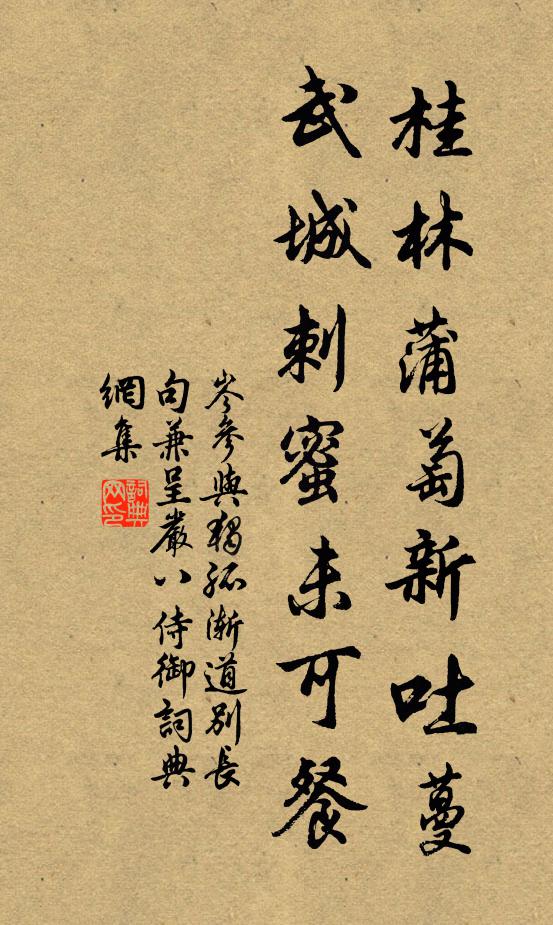 桂林蒲萄新吐蔓
武城刺蜜未可餐
岑參與獨孤漸道別長
句兼呈嚴八侍御詞典
網集
詞典網印